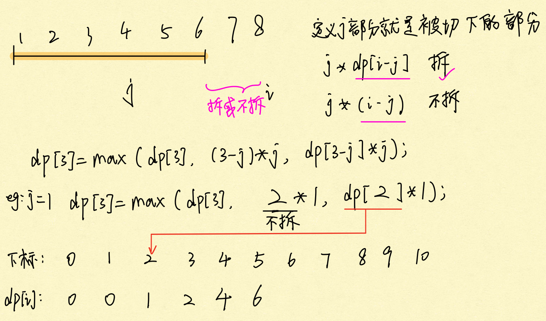 1 2 3 4 5 6 7 8
定义j部分就是被切下的部分
j * dp[i-j] 拆
j * (i-j) 不拆
j
拆或不拆 i
dp[3]=max(dp[3], (3-j)*j, dp[3-j]*j);
eg:j=1 dp[3]=max(dp[3], 2*1, dp[2]*1);
不拆
下标: 0 1 2 3 4 5 6 7 8 9 10
dp[i]: 0 0 1 2 4 6